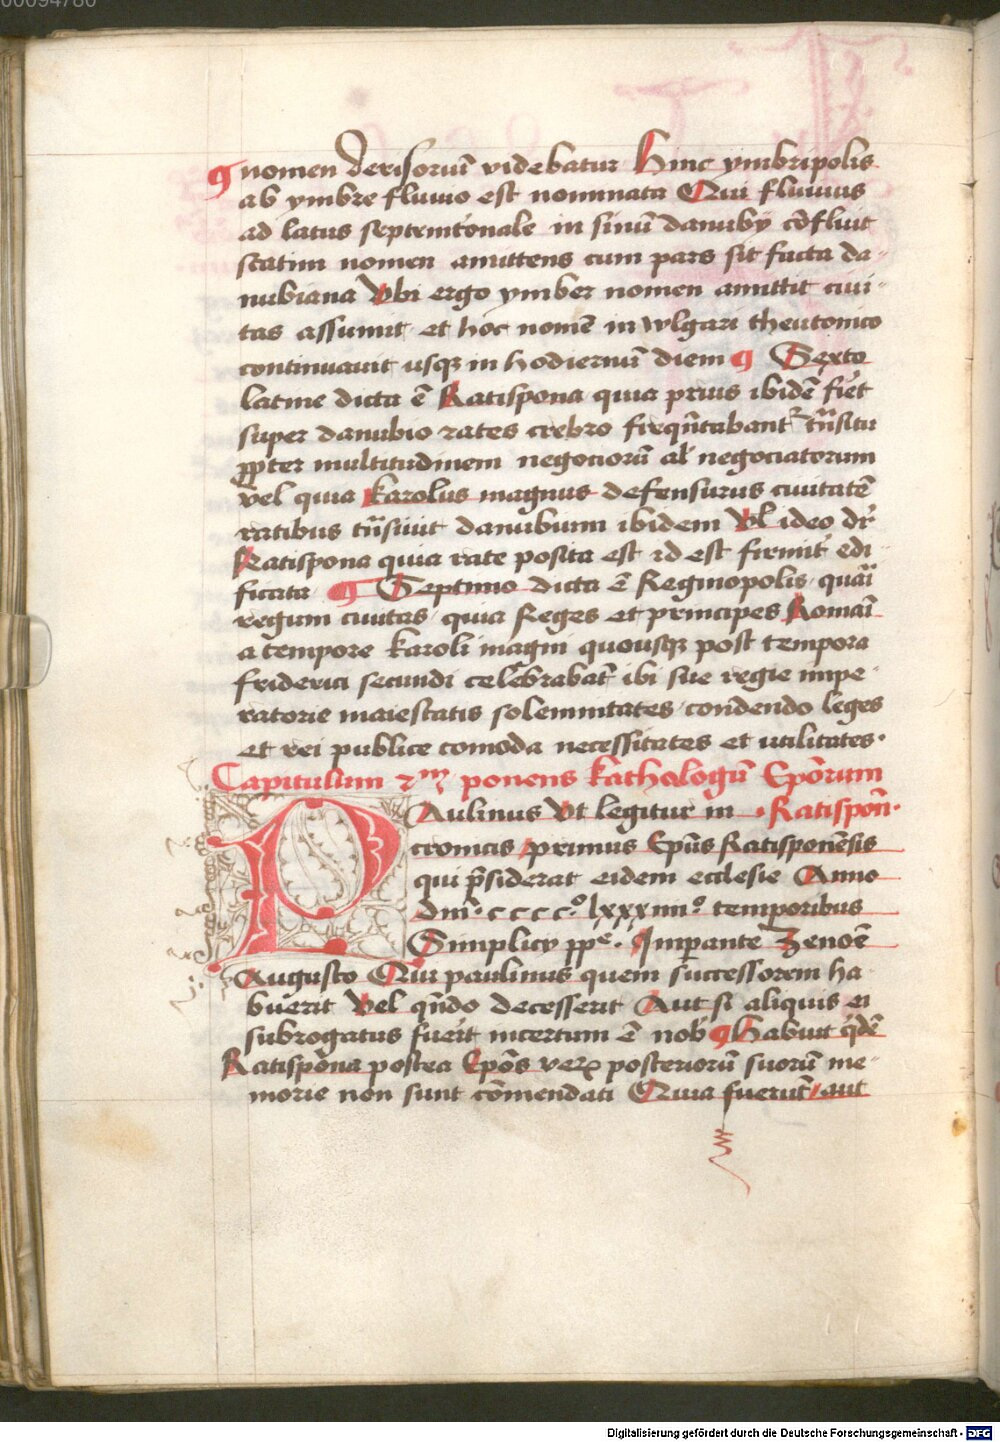 00094780
nomen derisoriū videbatur Hinc ymbripolis
ab ymbre fluuio est nominata Qui fluuius
ad latus septemtōnale in sinū danuby cōfluit
statim nomen amittens cum pars sit facta da-
nubiana Vbi ergo ymber nomen amittit ciui-
tas assumit et hoc nomē in wlgari theutonico
continuauit usqꝫ in hodiernū diem ¶ Sexto
latine dicta ē Ratispona quia prius ibidē
super danubio rates crebro
ꝓpter multitudinem negocioꝝ negociatorum
vel quia karolus magnus defensurus ciuitatē
ratibus danubium ibidem Vl ideo dr̄
Ratispona quia rate posita est id est firmit̄ edi-
ficata ¶ Septimo dicta ē Reginopolis
regum ciuitas quia Reges et principes
a tempore karoli magni quousqꝫ post tempora
friderici secundi ibi sue regie impe-
ratorie maiestatis solemnitates condendo leges
et rei publice comoda necessitates et utilitates.
Capitulum 2m ponens kathologū Epōrum
PAulinus Vt legitur in . Ratispoń.
cronicis primus Epūs Ratisponēsis
qui p̄siderat eidem ecclesie Anno
dm̄. cccc.o lxxxiiii.o temporibus
Simplicy pp̄e. Imperante Zenoē
Augusto Qui paulinus quem successorem ha-
buerit Vel qn̄do decesserit Aut si aliquis ei
subrogatus fuerit incertum ē nob̄ ¶ Habuit qͥdē
Ratispōna postea Epōs posteriorū suorū me-
morie non sunt cōmendati Quia fuerunt aut
Digitalisierung gefördert durch die Deutsche Forschungsgemeinschaft - DFG